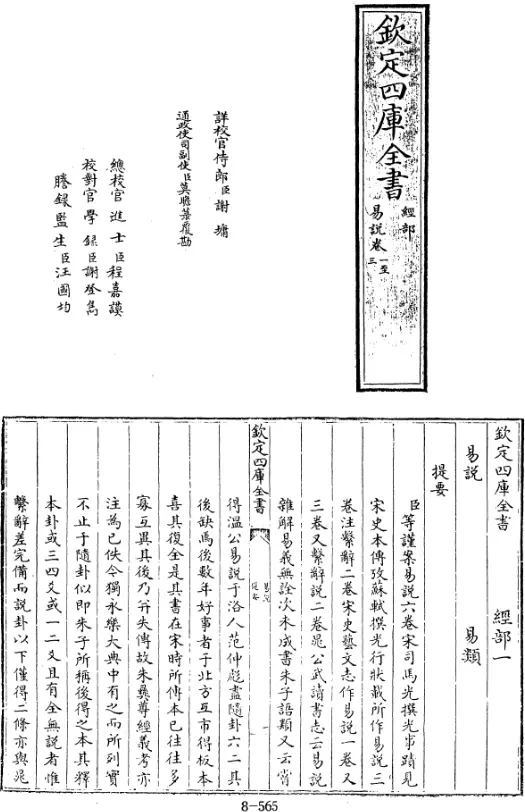 欽定四庫全書
經部
易說卷一至
三
詳校官侍郎臣謝墉
通政使司副使臣莫瞻菉覆勘
總校官進士臣程嘉謨
校對官學錄臣謝登雋
謄錄監生臣汪國均
欽定四庫全書 經部一
易說 易類
提要
臣等謹案易說六卷宋司馬光撰光事蹟見
宋史本傳攷蘇軾撰光行狀載所作易說三
卷注繫辭二卷宋史藝文志作易說一卷又
三卷又繫辭說二卷晁公武讀書志云易說
雜解易義無詮次未成書朱子語類又云嘗
欽定四庫全書
易說
提要
得溫公易說于洛人范仲彪盡隨卦六二其
後缺焉後數年好事者于北方互市得板本
喜其復全是其書在宋時所傳本已往往多
寡互異其後乃并失傳故朱彝尊經義考亦
注為已佚今獨永樂大典中有之而所列實
不止于隨卦似即朱子所稱後得之本其釋
本卦或三四爻或一二爻且有全無說者惟
繫辭差完備而說卦以下僅得二條亦與晁
8-565